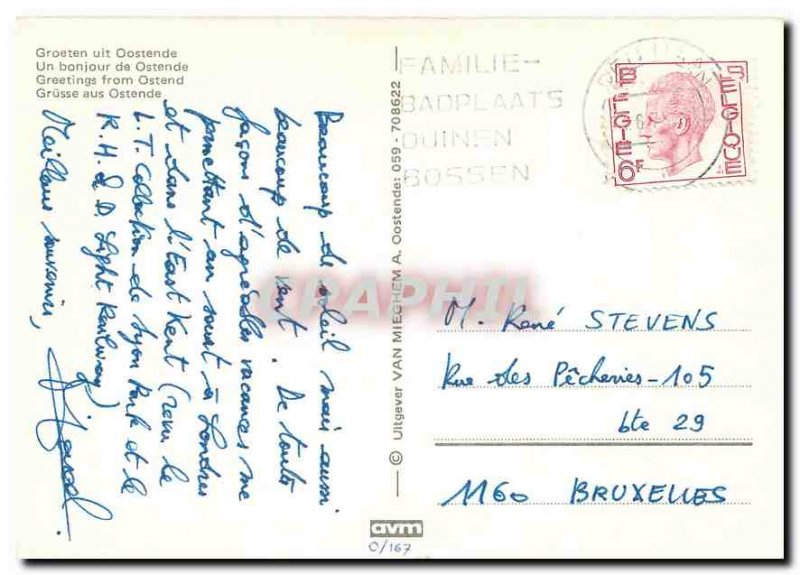 Groeten uit Oostende
Un bonjour de Ostende
Greetings from Ostend
Grüsse aus Ostende
Beaucoup de soleil mais aussi
beaucoup de vent. De toutes
façons d'agréables vacances me
permettant un saut à Londres
et dans l'East Kent (revu le
L.T. Collection de Syon Park et le
R.H. & D. Light Railway)
Meilleurs souvenirs,
© Uitgever VAN MIEGHEM A. Oostende: 059 - 708622
FAMILIE-
BADPLAATS
DUINEN
BOSSEN
BELGIE 6F
BELGIQUE
CPAPHIL
M. René STEVENS
Rue des Pêcheries-105
bte 29
1160 BRUXELLES
avm
O/167